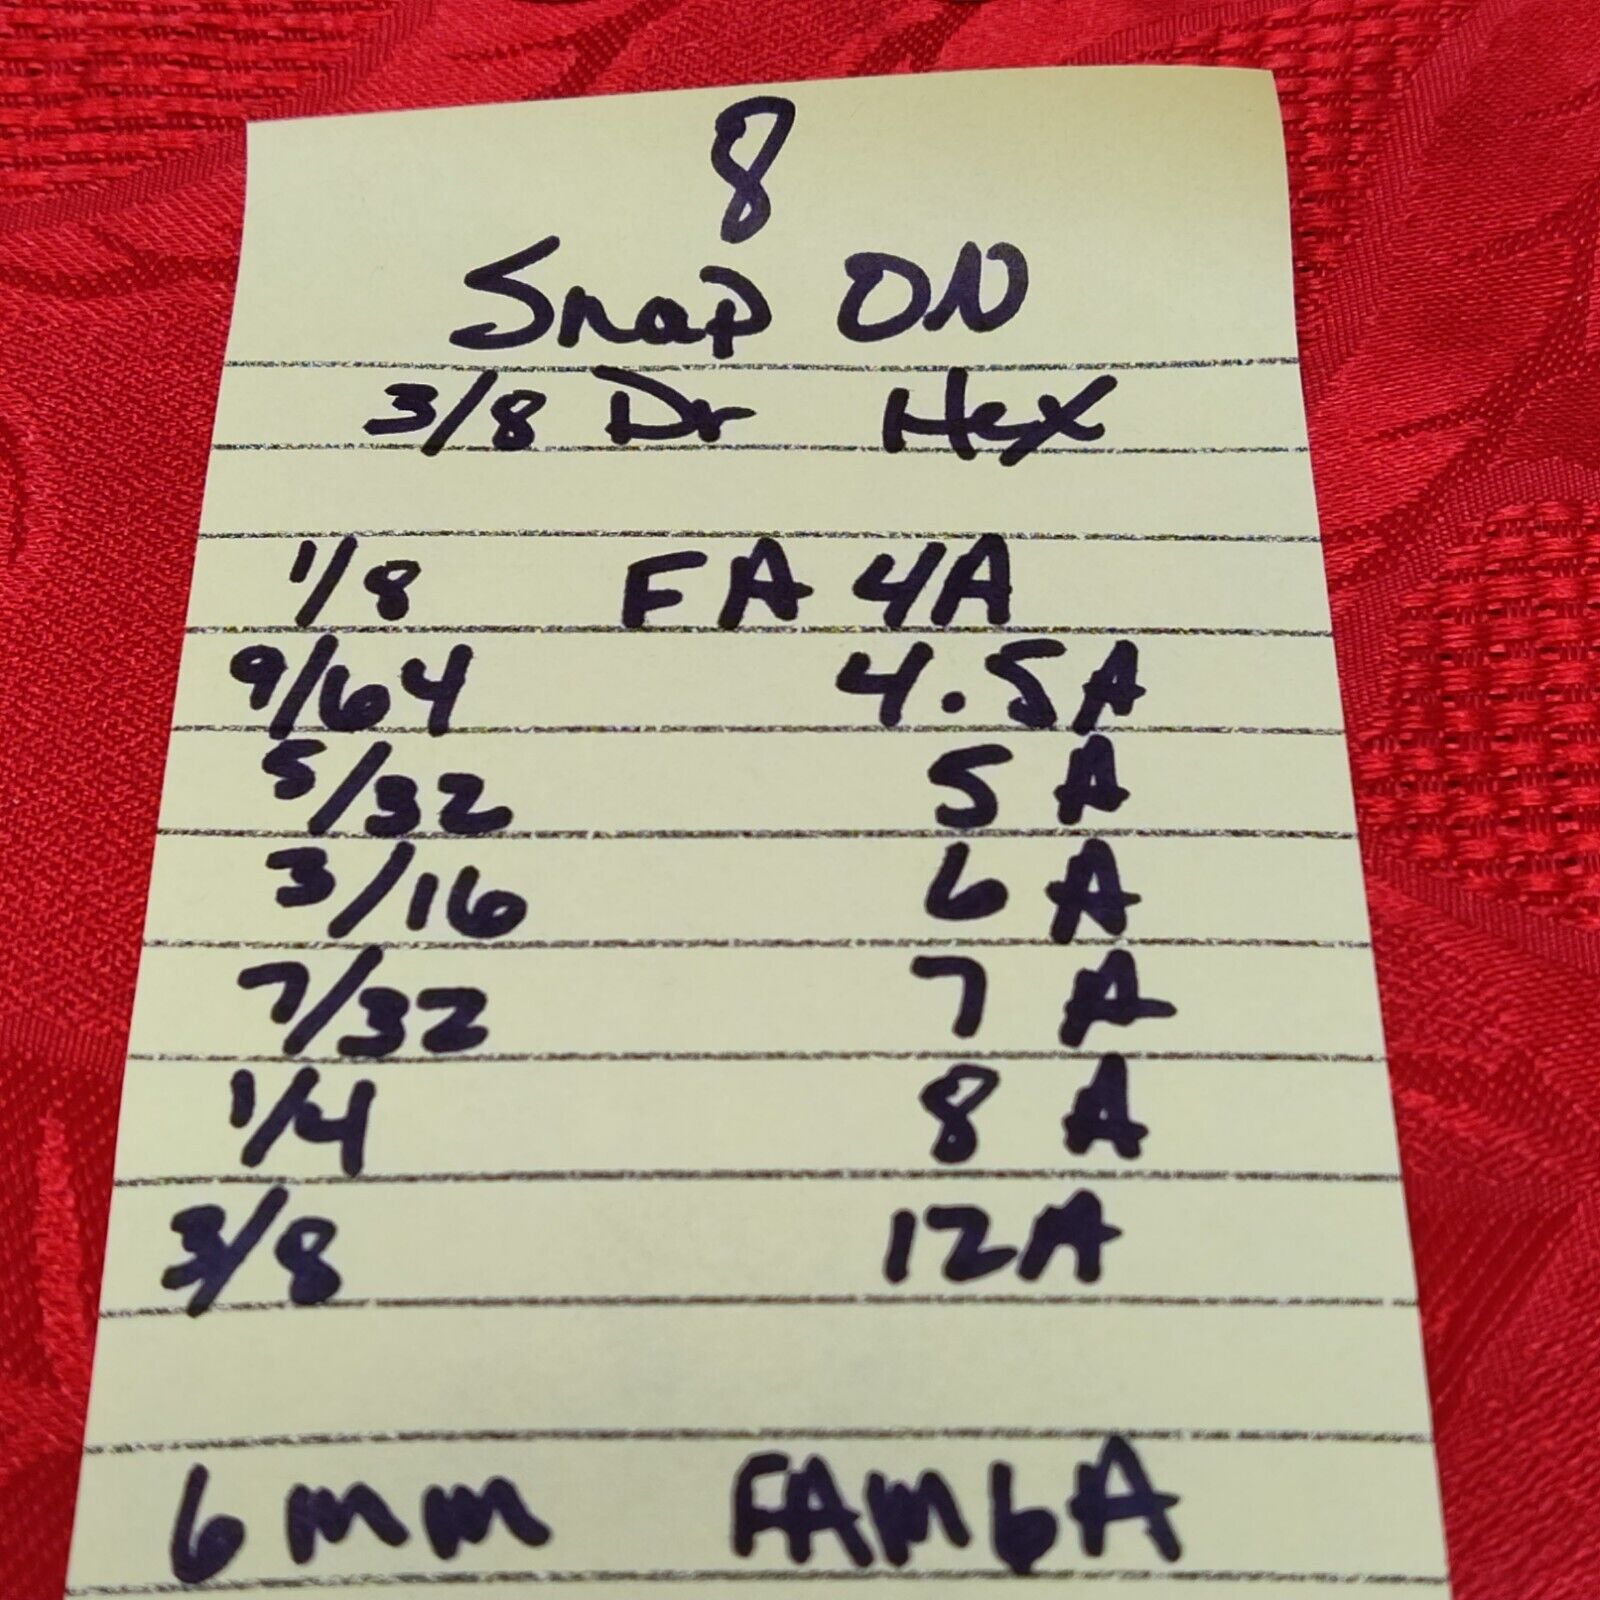 8
Snap ON
3/8 Dr Hex
1/8 FA 4A
9/64 4.5A
5/32 5 A
3/16 6 A
7/32 7 A
1/4 8 A
3/8 12A
6mm FAM6A